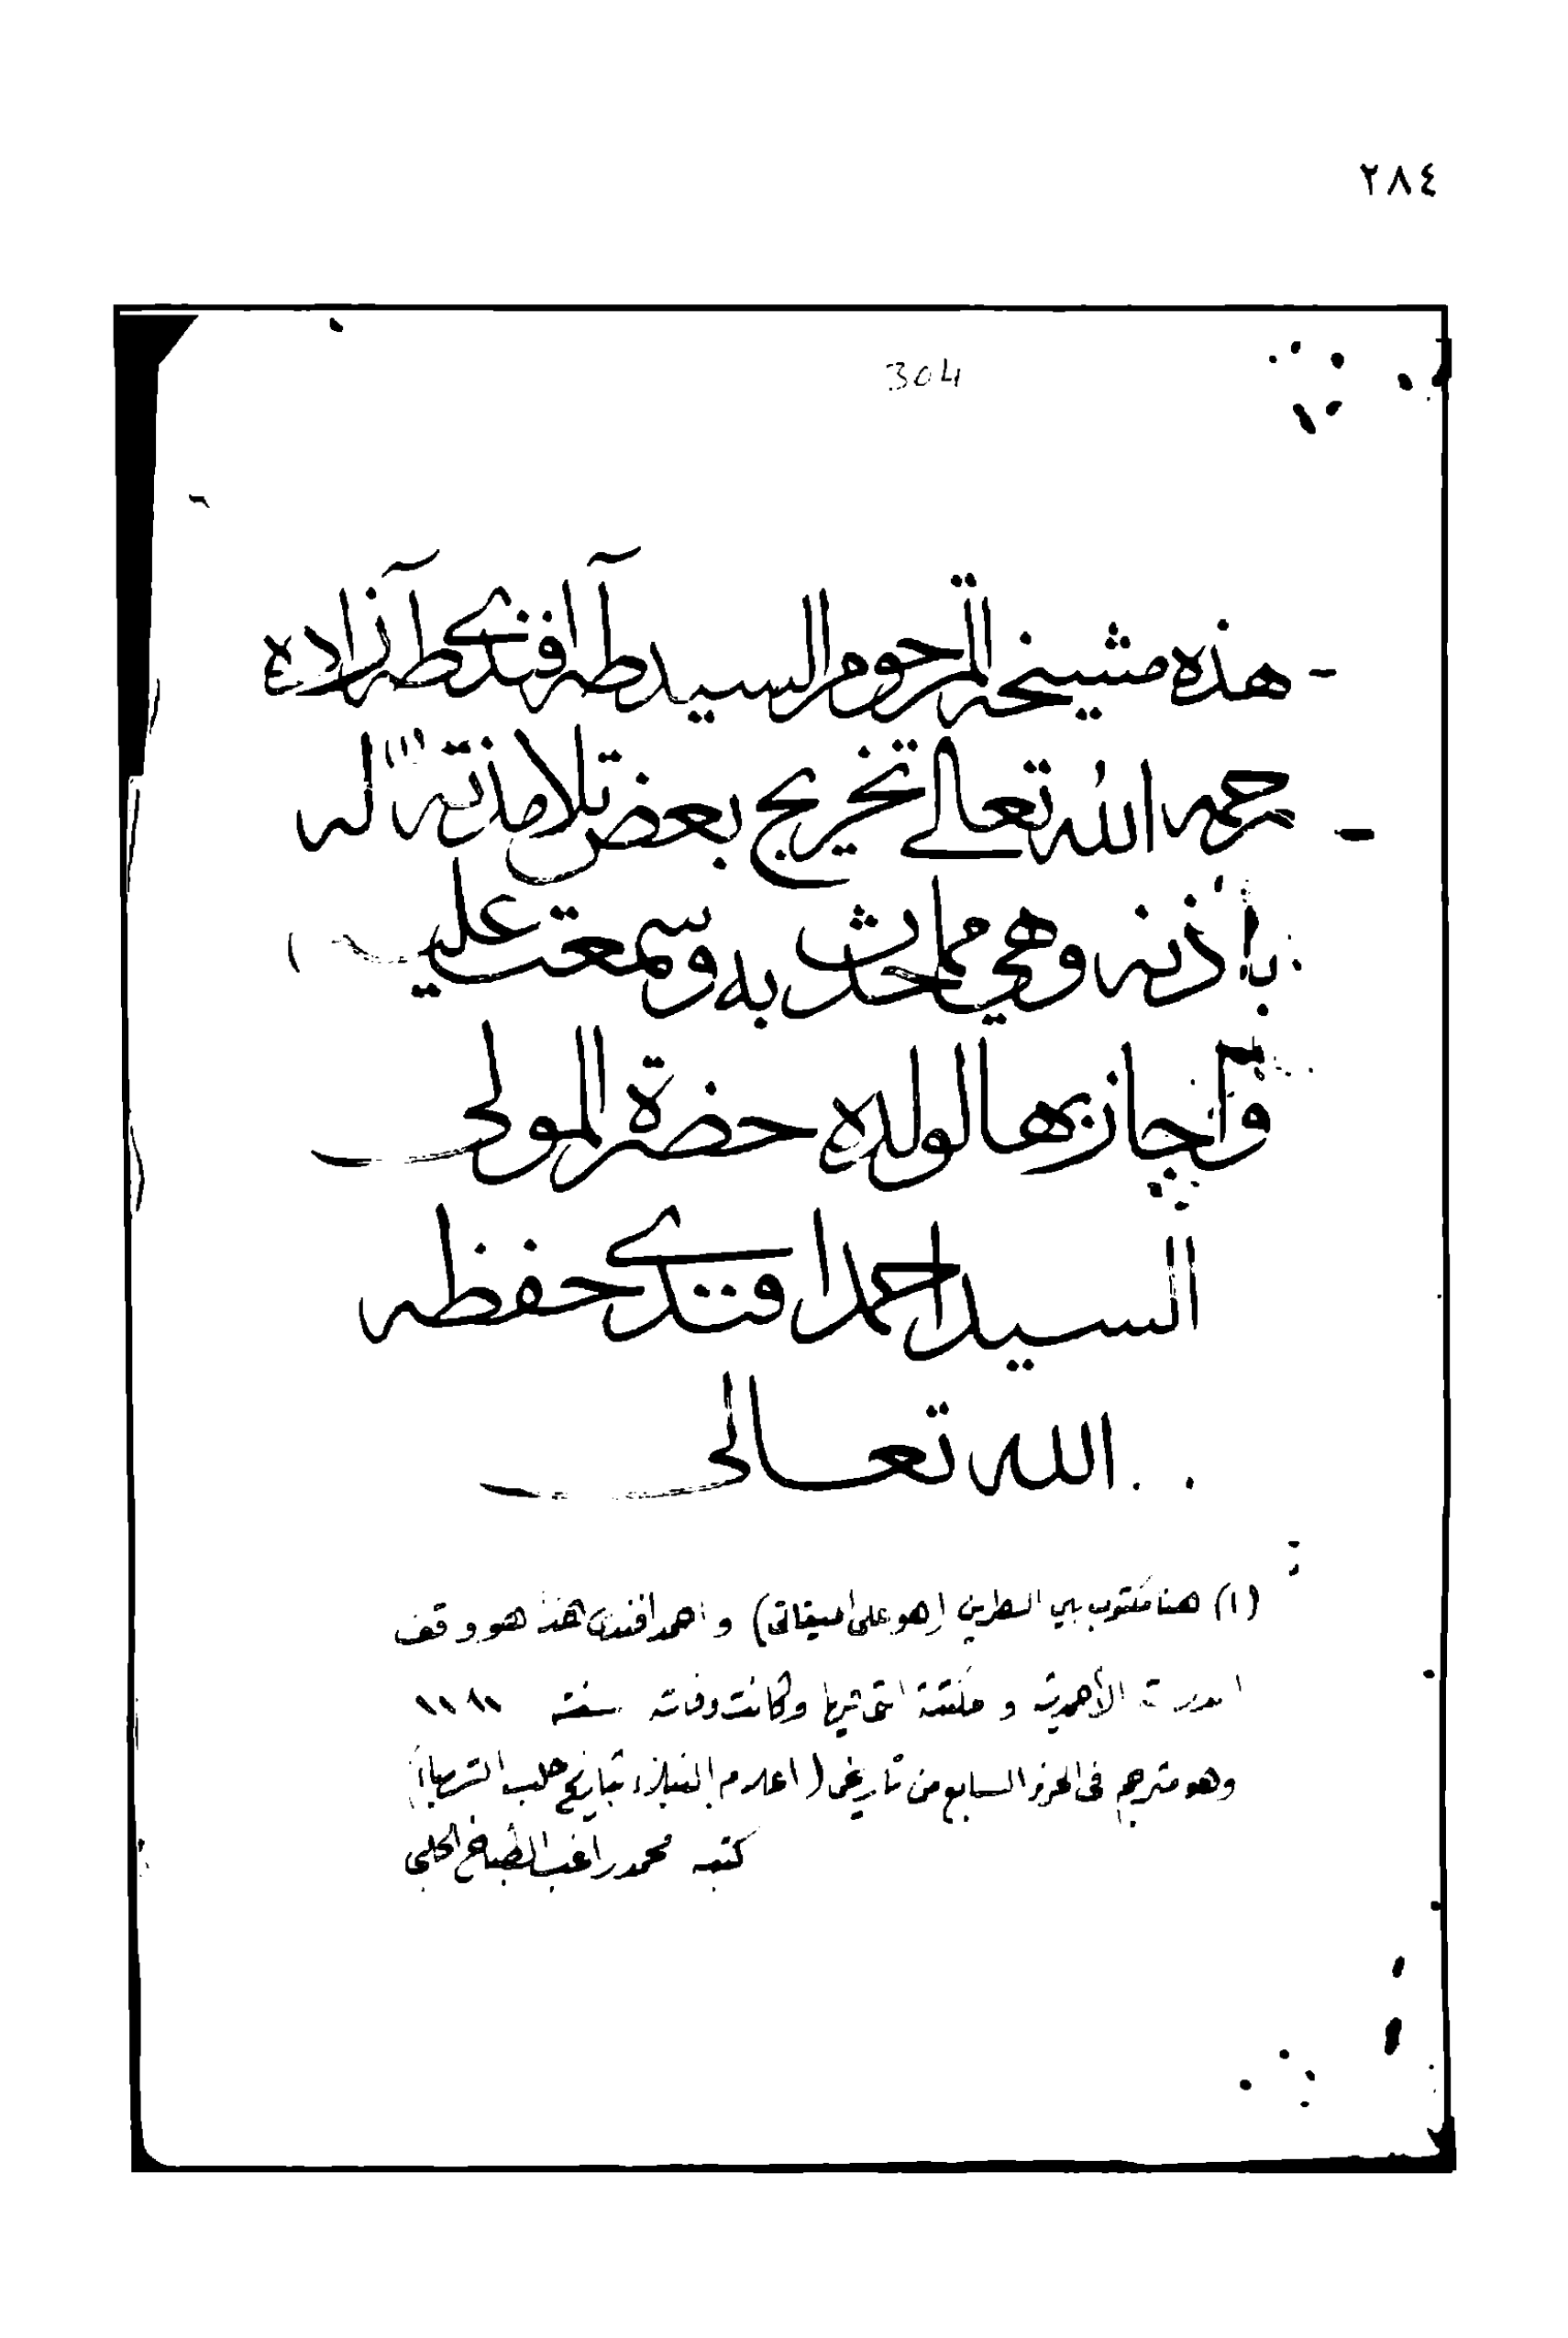 ٢٨٤
304
هذه مشيخة المرحوم السيد طه افندي طه زاده
رحمه الله تعالى تخريج بعض تلامذته (١) له
باذنه وهي مما حدث به وسمعت عليه
واجاز بها لولده حضرة المولى
السيد احمد افندي حفظه
الله تعالى
(١) هنا مكتوب بين السطرين (هو علي الميقاتي) و احمد افندي هذا هو وقف
المدرسة الأحمدية و مكتبة التي فيها وكانت وفاته سنة
وهو مترجم في الجزء السابع من تاريخي (اعلام النبلاء بتاريخ حلب الشهباء)
كتبه محمد راغب الطباخ الحلبي